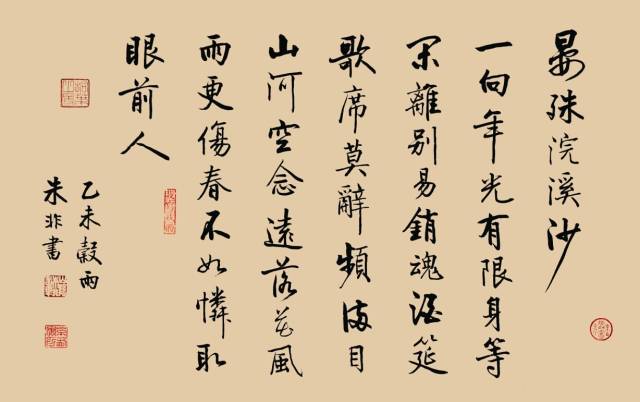 晏殊浣溪沙
一向年光有限身等
閑離别易銷魂酒筵
歌席莫辭頻滿目
山河空念遠落花風
雨更傷春不如憐取
眼前人
乙未穀雨
朱非書